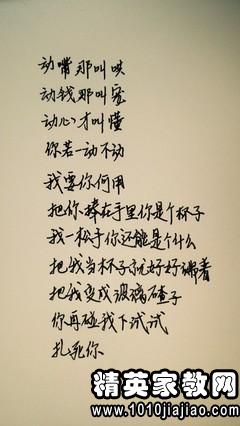 动嘴那叫哄
动钱那叫宠
动心才叫懂
你若一动不动
我要你何用
把你捧在手里你是个杯子
我一松手你还能是个什么
把我当杯子就好好端着
把我变成玻璃碴子
你再碰我下试试
扎死你
精英家教网
www.1010jiajiao.com